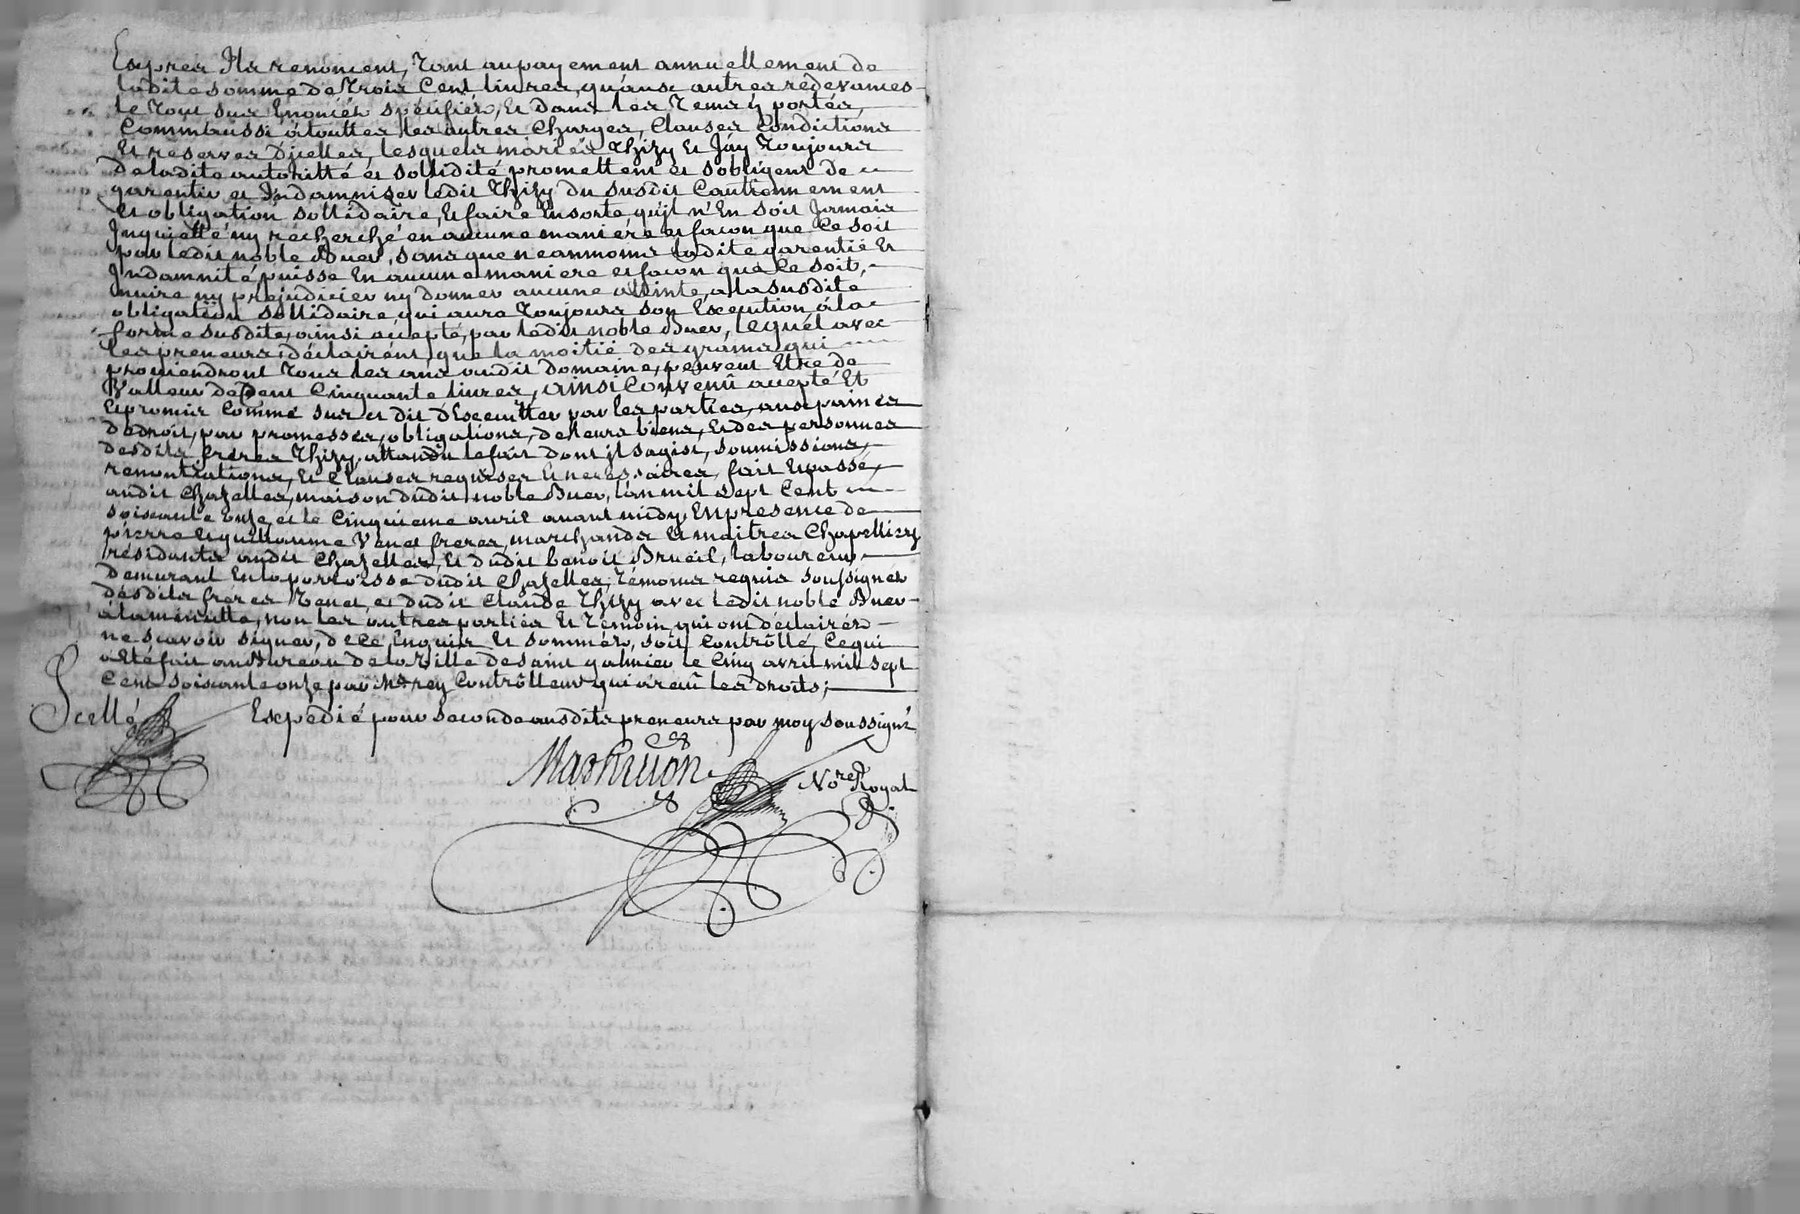 Exprès Ils renoncent, Tant au payement annuellement de
ladite somme de Trois Cent livres, qu'aux autres redevances
le Tout sus Enoncés spécifiés, Et dans les Temps y portés,
Comm'aussi à touttes les autres Charges, Clauses Condictions
Et reserves D'jcelles, lesquels mariés Thizy Et Jay Toujours
de ladite autoritté et sollidité promettent et s'obligent De
garentir et Indamniser ledit Thizy du susdit Cautionnement
et obligation sollidaire, Et faire Ensorte qu'jl n'En soit Jamais
Jnquietté ny récherché en aucune maniere et façon que Ce soit
par ledit noble Buer, sans que neanmoins ladite garentié Et
Jndamnité puisse En aucune maniere et façon que Ce soit,
nuire ny préjudicier ny donner aucune atteinte, a la susdite
obligation sollidaire, qui aura Toujours son Exécution à la
forme susdite, ainsi accepté, par ledit noble Buer, lequel avec
les preneurs, déclairent, que la moitié des grains qui
proviendront Tous les ans audit domaine, peuvent Etre de
Valleur de Cent Cinquante livres, Ainsi Convenû accepté Et
Et promis Comme sus et dit d'Execuitter par les parties, aux paines
de droit, par promesses, obligations, de leurs biens, Et des personnes
desdits freres Thizy, attandu le fait dont jl s'agist, soumissions,
renontiations, Et Clauses requises Et necéssaires, fait Et passé,
audit Chazelles, maison dudit noble Buer, l'an mil sept Cent
soixante Onze, et le Cinquieme avril avant midy, En presence de
pierre Et guillaume Venet freres, marchands Et maitres Chapelliers
résidants audit Chazelles, Et dudit benoit Brueil, laboureur,
demeurant En la parroisse dudit Chazelles, Témoins requis soussignés
desdits freres Venet, et dudit Claude Thizy avec ledit noble Buer
à la minutte, non les autres parties Et Témoin qui ont déclairés
ne scavoir signer, de Ce Enquis Et sommés, soit Controllé, Ce qui
a Eté fait au Bureau de la Ville de saint galmier le Cinq avril mil sept
Cent soixante onze par Mr rey Controlleur qui a reçû les droits;
Scellé
Expédié pour seconde ausdits preneurs par moy soussigné
Nore Royal